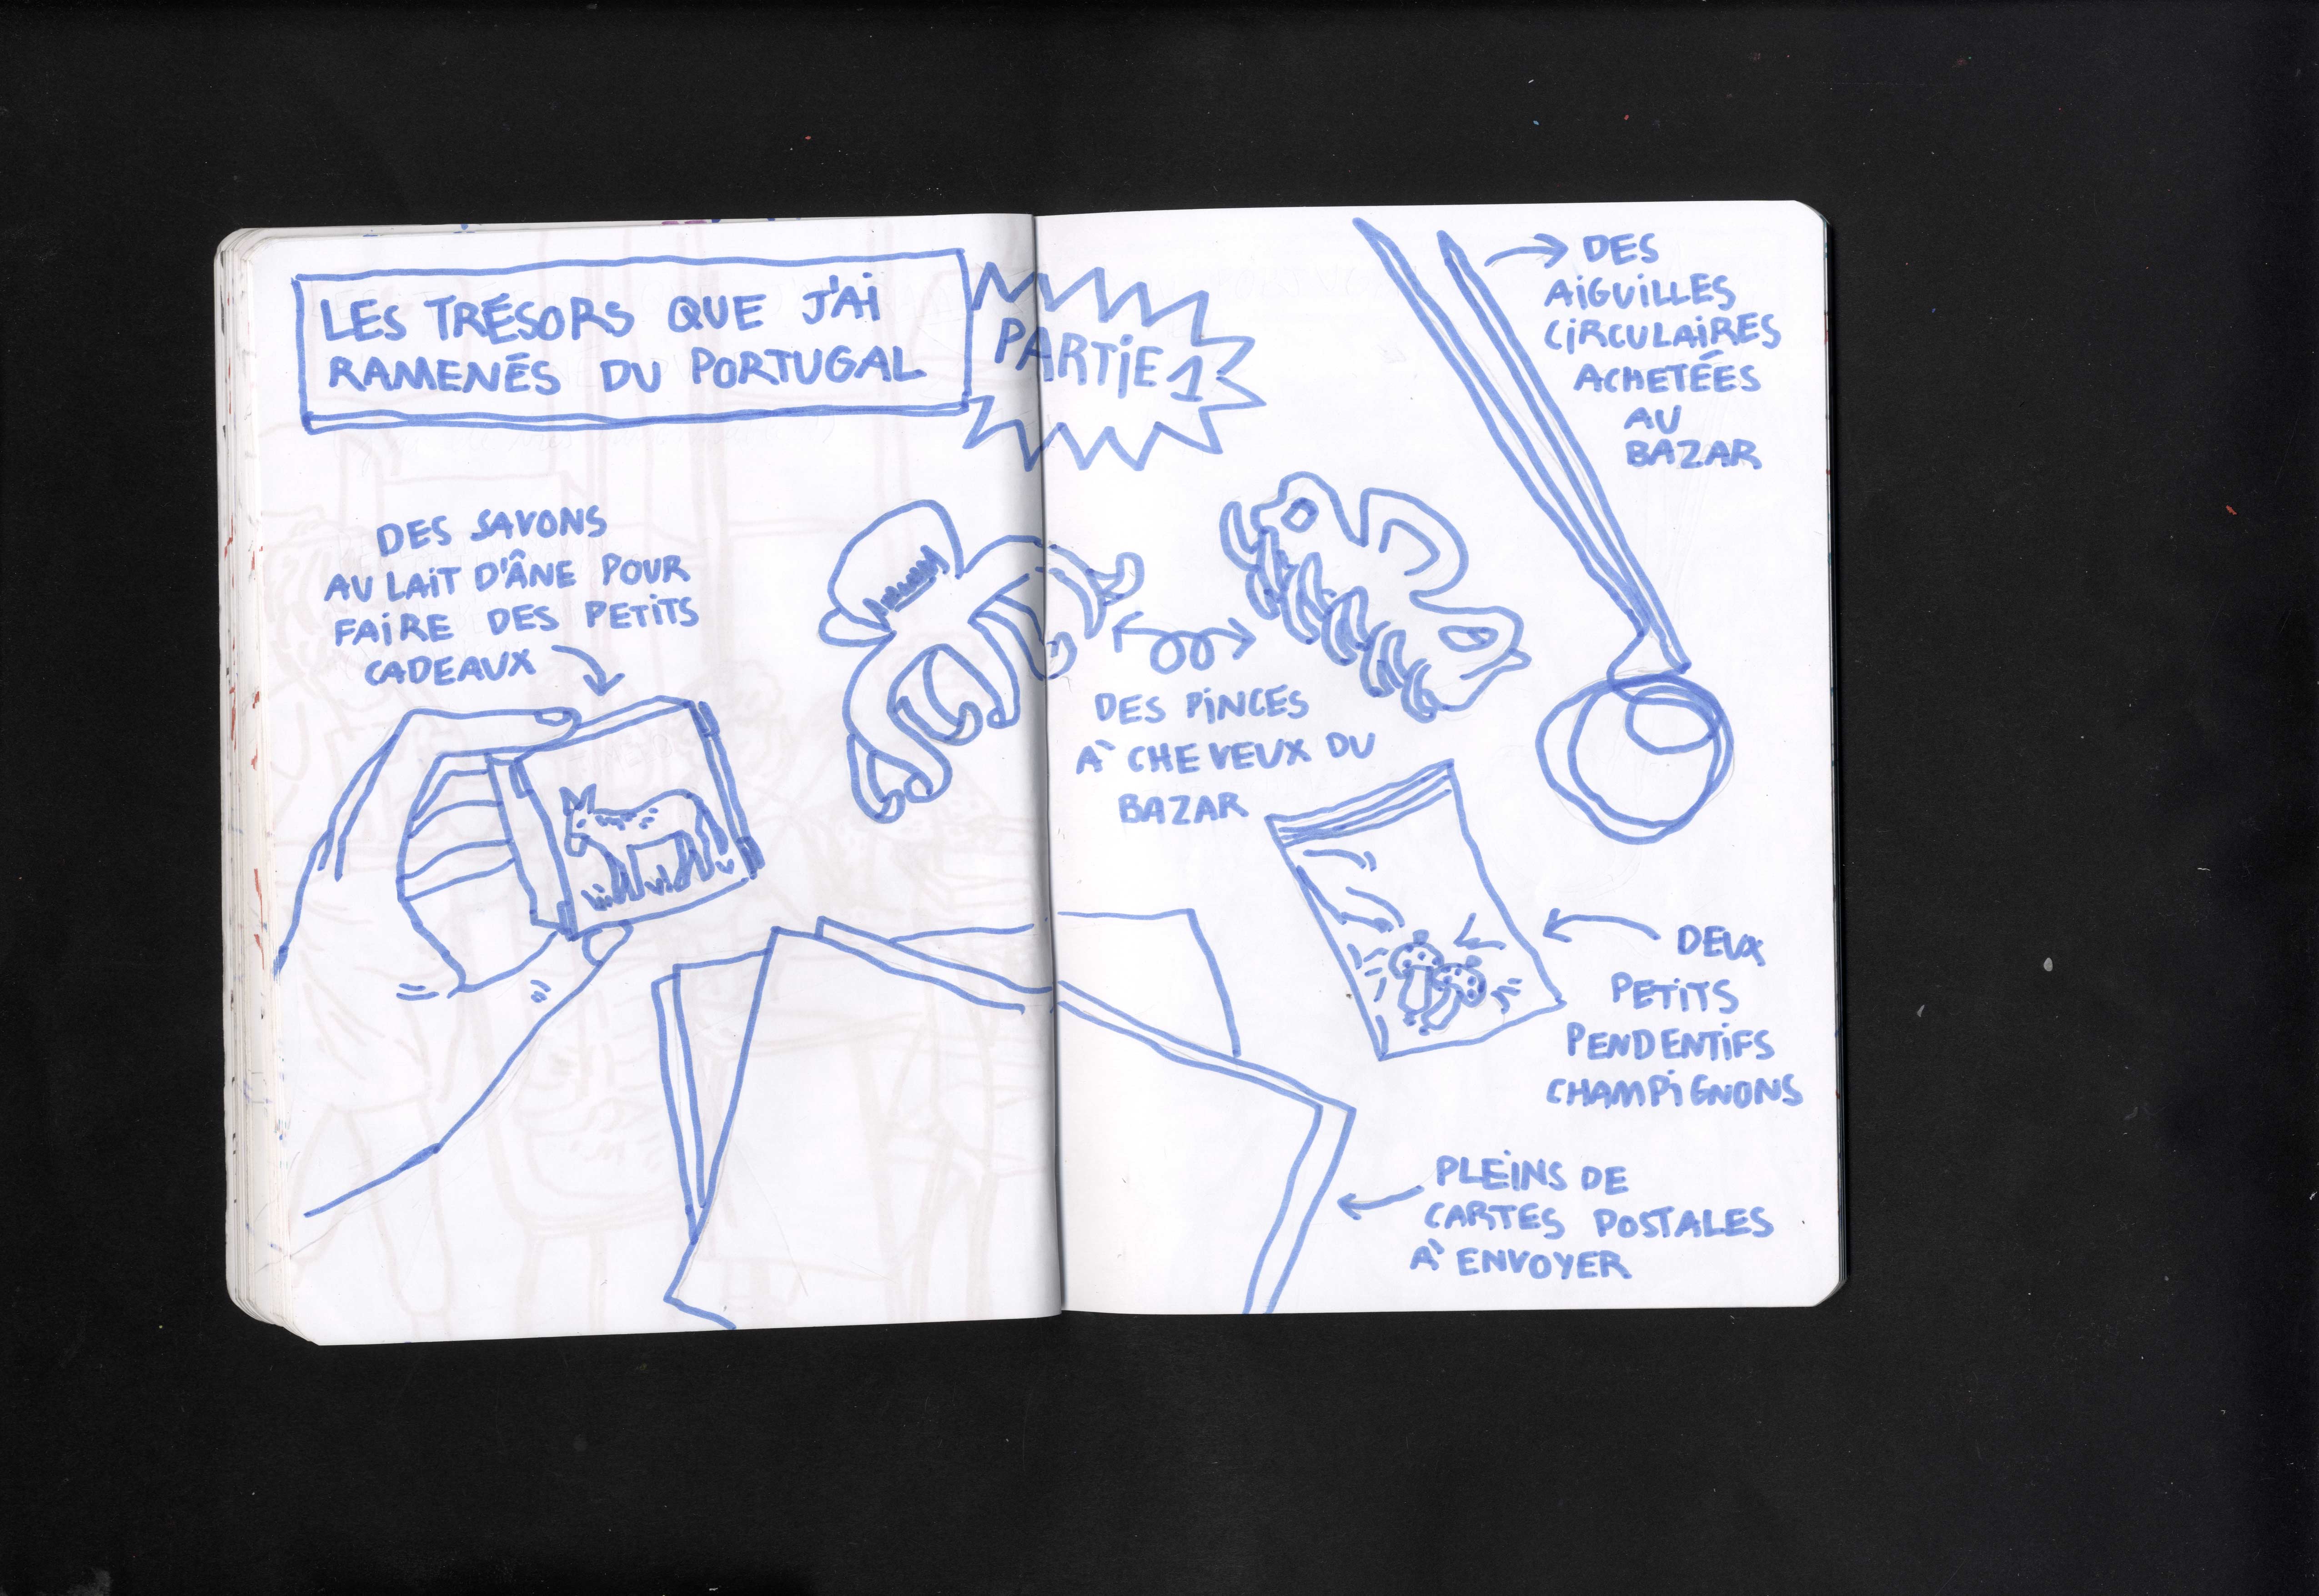 LES TRÉSORS QUE J'AI
RAMENÉS DU PORTUGAL
PARTIE 1
DES SAVONS
AU LAIT D'ÂNE POUR
FAIRE DES PETITS
CADEAUX
DES PINCES
À CHEVEUX DU
BAZAR
DES
AIGUILLES
CIRCULAIRES
ACHETÉES
AU
BAZAR
DEUX
PETITS
PENDENTIFS
CHAMPIGNONS
PLEINS DE
CARTES POSTALES
À ENVOYER